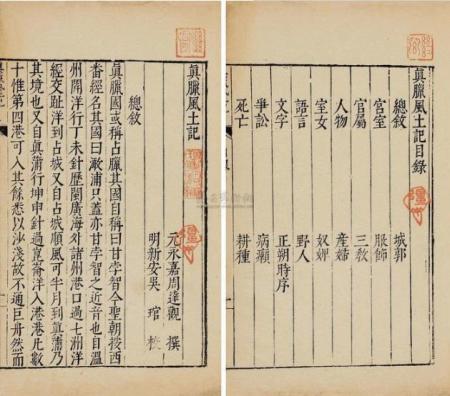 眞臘風土記目錄
總敘　城郭
宮室　服飾
官屬　三教
人物　產婦
室女　奴婢
語言　野人
文字　正朔時序
爭訟　病癩
死亡　耕種
眞臘風土記
元永嘉周達觀　撰
明新安吳　琯　校
總敘
眞臘國或稱占臘其國自稱曰甘孛智今聖朝按西
番經名其國曰澉浦只蓋亦甘孛智之近音也自溫
州開洋行丁未針歷閩廣海外諸州港口過七洲洋
經交趾洋到占城又自占城順風可半月到眞蒲乃
其境也又自眞蒲行坤申針過崑崙洋入港港凡數
十惟第四港可入其餘悉以沙淺故不通巨舟然而